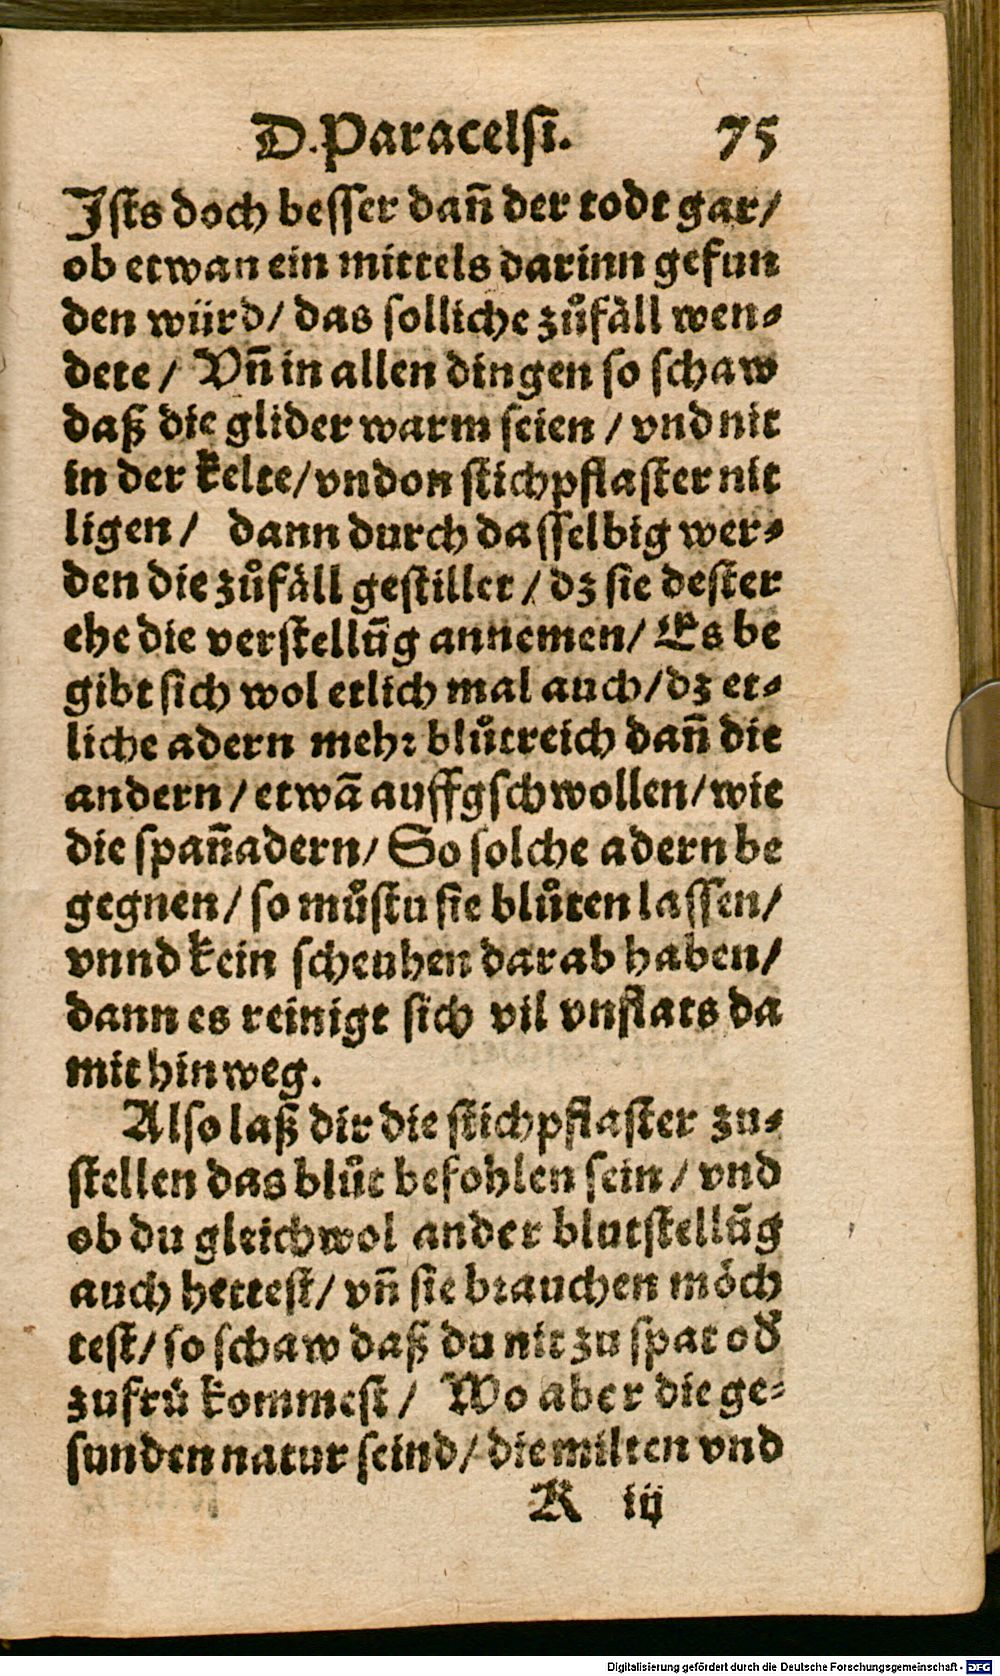 D. Paracelsi. 75
Ists doch besser dañ der todt gar/
ob etwan ein mittels darinn gefun
den würd/ das solliche zůfäll wen-
dete/ Vñ in allen dingen so schaw
daß die glider warm seien/ vnd nit
in der kelte/ vnd on stichpflaster nit
ligen/ dann durch dasselbig wer-
den die zůfäll gestillet/ dz sie dester
ehe die verstellũg annemen/ Es be
gibt sich wol etlich mal auch/ dz et-
liche adern mehr blůtreich dañ die
andern/ etwã auffgschwollen/ wie
die spañadern/ So solche adern be
gegnen/ so můstu sie blůten lassen/
vnnd kein scheuhen darab haben/
dann es reinigt sich vil vnflats da
mit hinweg.
Also laß dir die stichpflaster zu-
stellen das blůt befohlen sein/ vnd
ob du gleichwol ander blutstellũg
auch hettest/ vñ sie brauchen möch
test/ so schaw daß du nit zu spat oď
zufrü kommest/ Wo aber die ge-
sunden natur seind/ die milten vnd
K iij
Digitalisierung gefördert durch die Deutsche Forschungsgemeinschaft - DFG